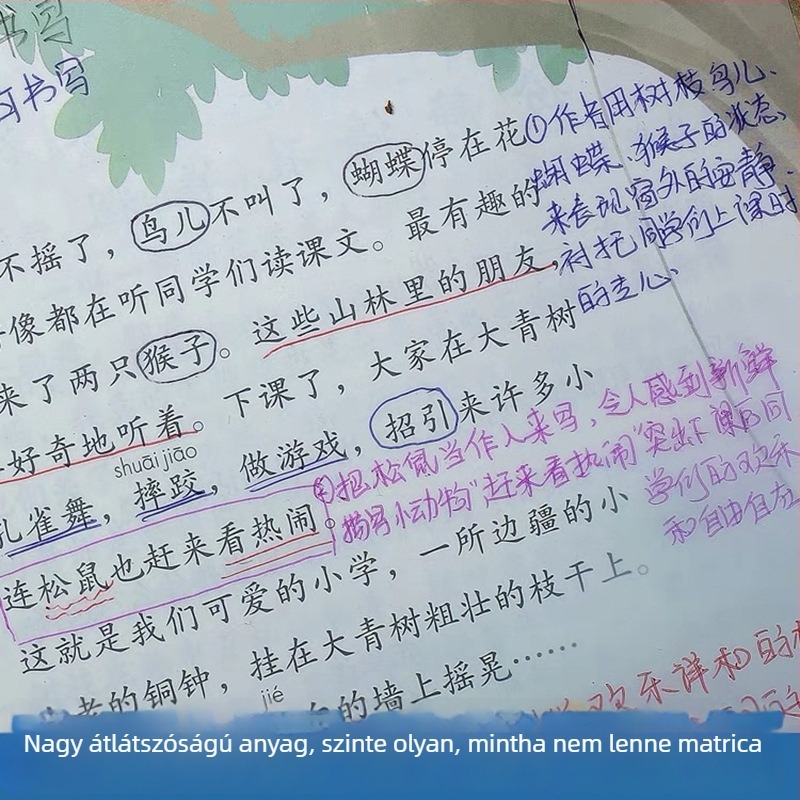 书写
习书写
不摇了，鸟儿不叫了，蝴蝶停在花
像都在听同学们读课文。最有趣的
来了两只猴子。这些山林里的朋友，
好奇地听着。下课了，大家在大青树
shuāi jiāo
孔雀舞，摔跤，做游戏，招引来许多小
连松鼠也赶来看热闹。
这就是我们可爱的小学，一所边疆的小
老的铜钟，挂在大青树粗壮的枝干上。
jié
的墙上摇晃……
①作者用树枝鸟儿、
蝴蝶、猴子的状态，
来表现窗外的安静，
衬托同学们上课时
的专心、
②把松鼠当作人来写，令人感到新鲜
描写小动物"赶来看热闹"突出下课后同
学们的欢乐
和自由自在
欢乐祥和的
Nagy átlátszóságú anyag, szinte olyan, mintha nem lenne matrica